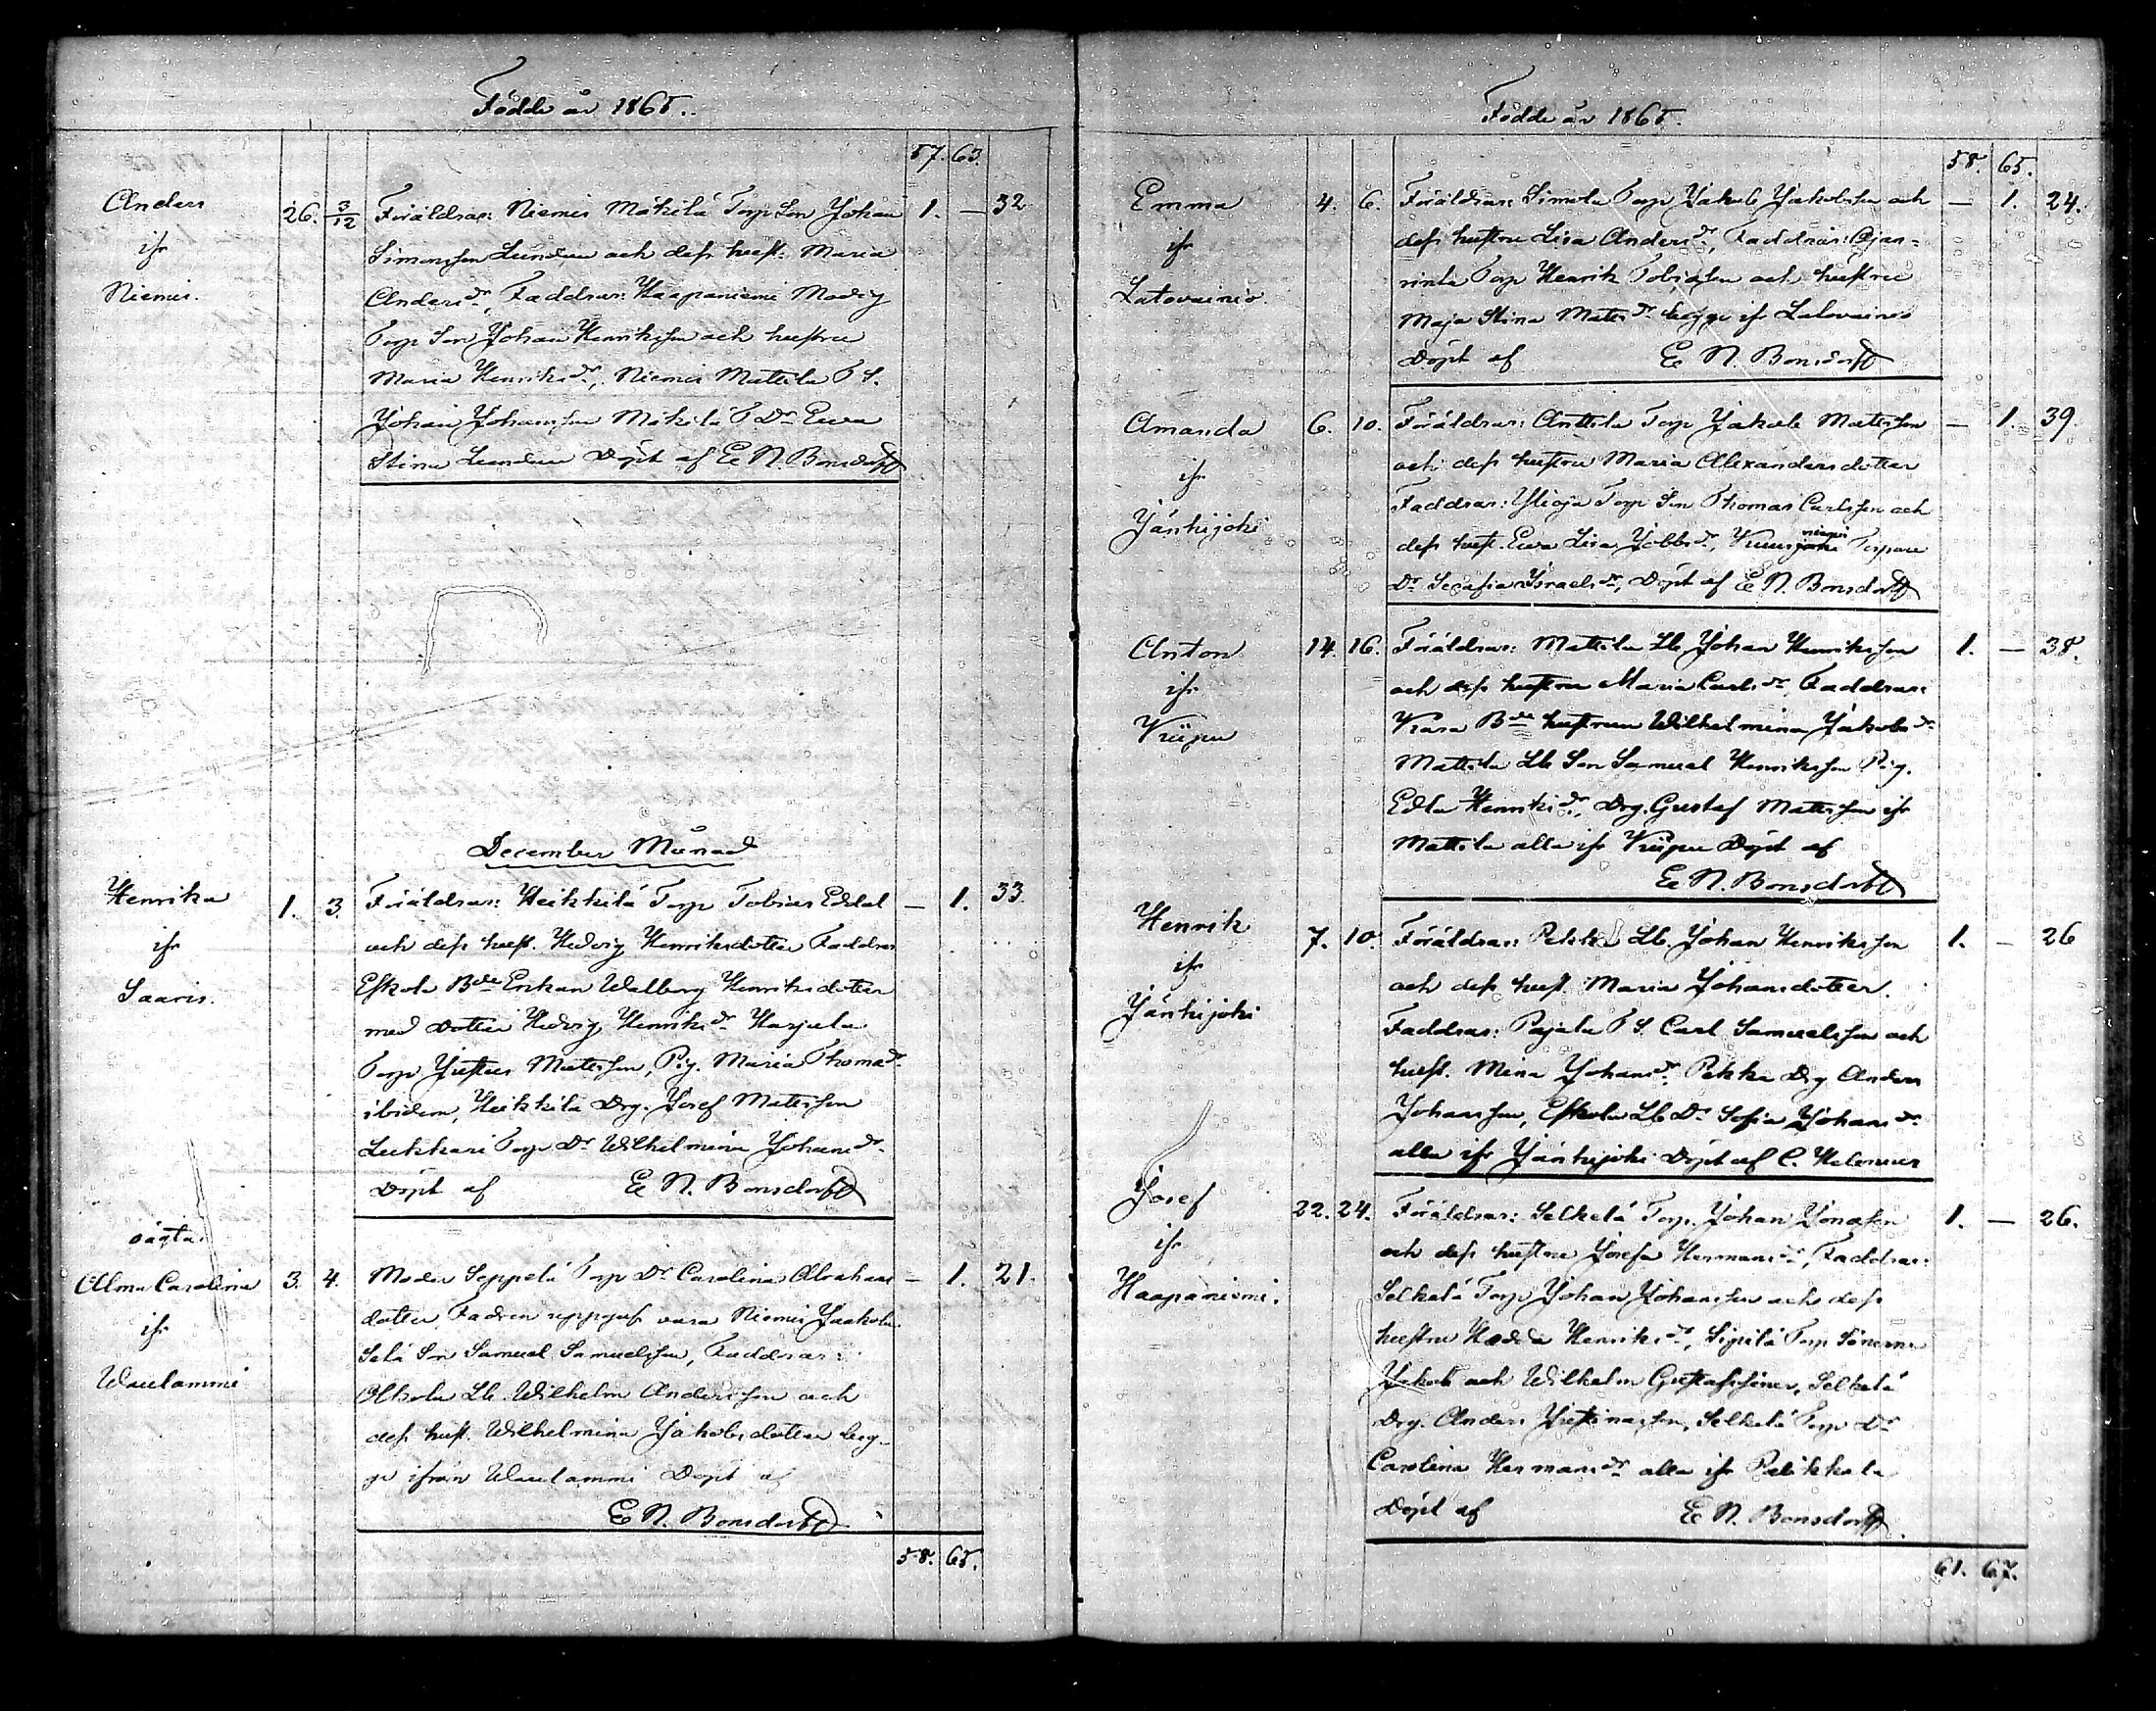 Födde år 1865.
57. 63.
Anders
ifr
Niemis.
26. 3/12
Föräldrar: Niemis Mäkilä Torp Son Johan
Simonsson Lundén och dess hust. Maria
Andersdr, Faddrar: Haapaniemi
Torp Son Johan Henriksson och hustru
Maria Henriksdr, Niemis Mattila T S.
Johan Johansson Mäkilä T Dr Eva
Stina Lundén Döpt af E N. Bonsdorff
1. — 32
December Månad
Henrika
ifr
Saaris.
1. 3.
Föräldrar: Heikkilä Torp Tobias
och dess hust. Hedvig Henriksdotter Faddrar
Eskola Bde Enkan Walborg Henriksdotter
med dotter Hedvig Henriksdr Harjula
Torp Justus Matsson, Pig. Maria Thomasdr
ibidem, Heikkilä Drg. Josef Matsson
Lukkari Torp Dr Wilhelmina Johansdr
Döpt af E N. Bonsdorff
— 1. 33.
oägta
Alma Carolina
ifr
Waulammi
3. 4.
Moder Seppelä Torp Dr Carolina Abrahams
dotter, Fadren uppgifs vara Niemis Jaakola
Son Samuel Samuelsson, Faddrar:
Lb. Wilhelm Andersson och
dess hust. Wilhelmina Jakobsdotter beg-
ge ifrån Waulammi Döpt af
E N. Bonsdorff
— 1. 21.
58. 65.
Födde år 1865.
58. 65.
Emma
ifr
Latovainio
4. 6.
Föräldrar: Simola Torp Jakob Jakobsson och
dess hustru Lisa Andersdr, Faddrar: Ojan-
rinta Torp Henrik Tobiasson och hustru
Maja Stina Matsdr begge ifr Latovainio
Döpt af E N. Bonsdorff
— 1. 24.
Amanda
ifr
Jänhijoki
6. 10.
Föräldrar: Anttila Torp Jakob Matsson
och dess hustru Maria Alexandersdotter
Faddrar: Ylioja Torp Son Thomas Carlsson och
dess hust. Eva Lisa Jobbsdr, Torpare
Dr Serafia Israelsdr, Döpt af E N. Bonsdorff
— 1. 39.
Anton
ifr
Vriipu
14. 16.
Föräldrar: Mattila Lb Johan Henriksson
och dess hustru Maria Carlsdr Faddrar:
Bde hustrun Wilhelmina Jakobsdr
Mattila Lb Son Samuel Henriksson Pig.
Edla Henriksdr, Drg. Gustaf Matsson ifr
Mattila alla ifr Vriipu Döpt af
E N. Bonsdorff
1. — 38.
Henrik
ifr
Jänhijoki
7. 10.
Föräldrar: Pekka Lb. Johan Henriksson
och dess hust. Maria Johansdotter.
Faddrar: Pajula T S. Carl Samuelsson och
hust. Mina Johansdr Pekka Drg Anders
Johansson, Eskola Lb Dr Sofia Johansdr
alla ifr Jänhijoki Döpt af C. Helenius
1. — 26
Josef
ifr
Haapaniemi.
22. 24.
Föräldrar: Selkelä Torp. Johan Jonasson
och dess hustru Josefa Hermansdr, Faddrar:
Selkelä Torp Johan Johansson och dess
hustru Hedda Henriksdr, Sipilä Torp Sönerne
Jakob och Wilhelm Gustafssöner, Selkelä
Drg. Anders Justinasson, Selkelä Torp Dr
Carolina Hermansdr alla ifr Palikkala
Döpt af E N. Bonsdorff.
1. — 26.
61. 67.